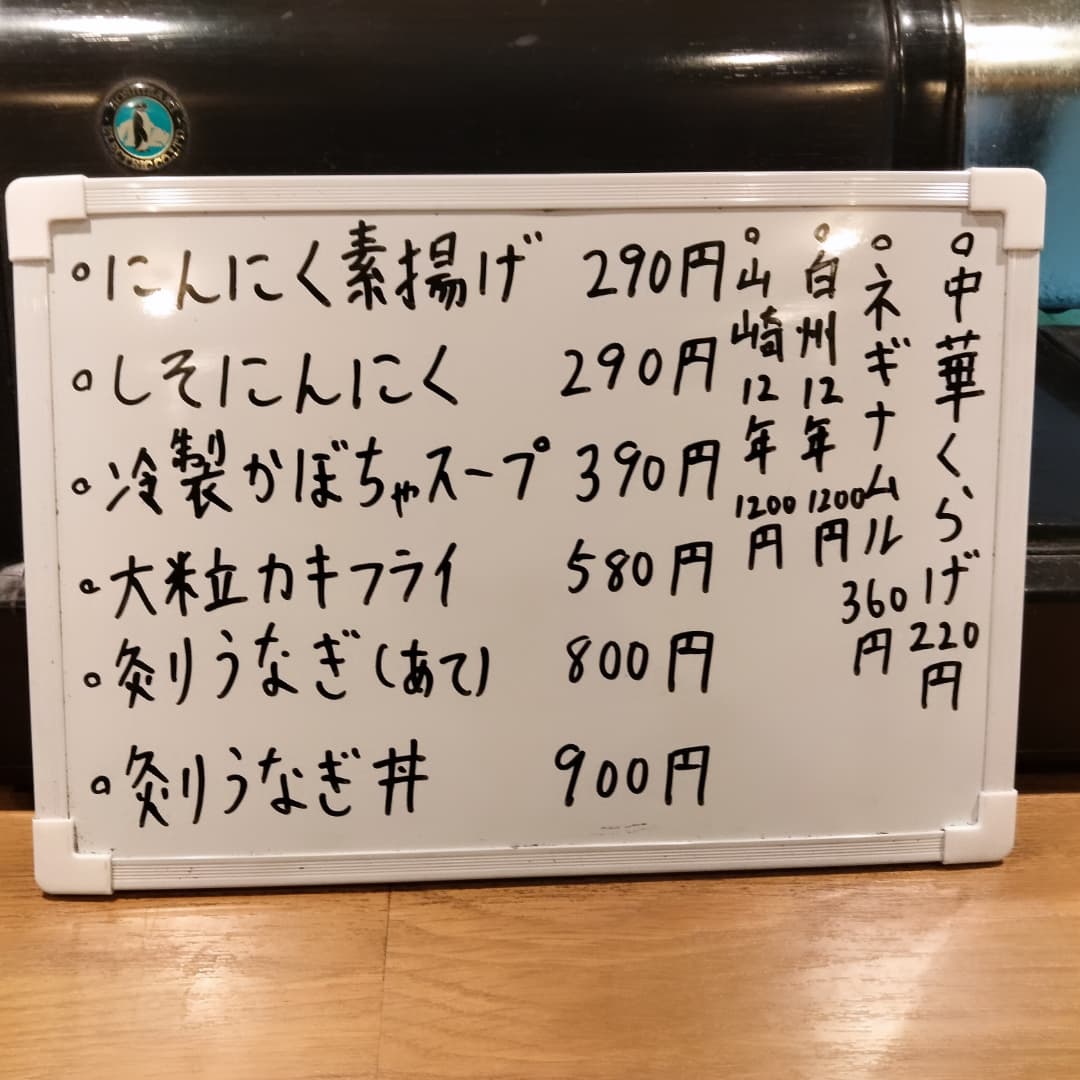 ○にんにく素揚げ 290円
○しそにんにく 290円
○冷製かぼちゃスープ 390円
○大粒カキフライ 580円
○炙りうなぎ(あて) 800円
○炙りうなぎ丼 900円
○中華くらげ 220円
○ネギナムル 360円
○白州12年 1200円
○山崎12年 1200円